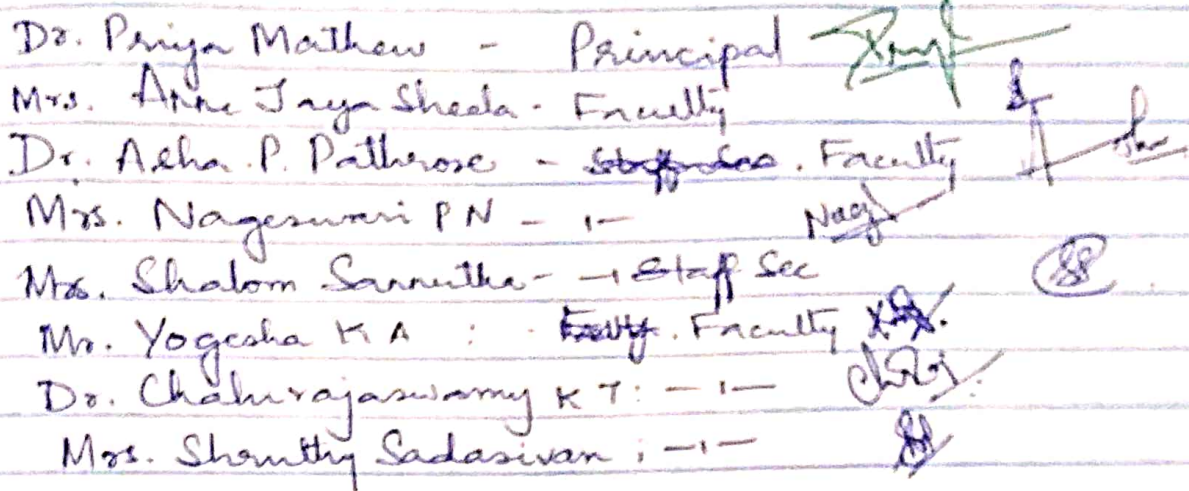 Dr. Priya Mathew - Principal
Mrs. Anne Jaya Sheela - Faculty
Dr. Asha. P. Pathrose - Faculty
Mrs. Nageswari P N - 〃
Mrs. Shalom Samutha - Staff Sec
Mr. Yogesha K A : Faculty
Dr. Chaluvrajaswamy K T: -〃-
Mrs. Shruthy Sadasivan : -〃-